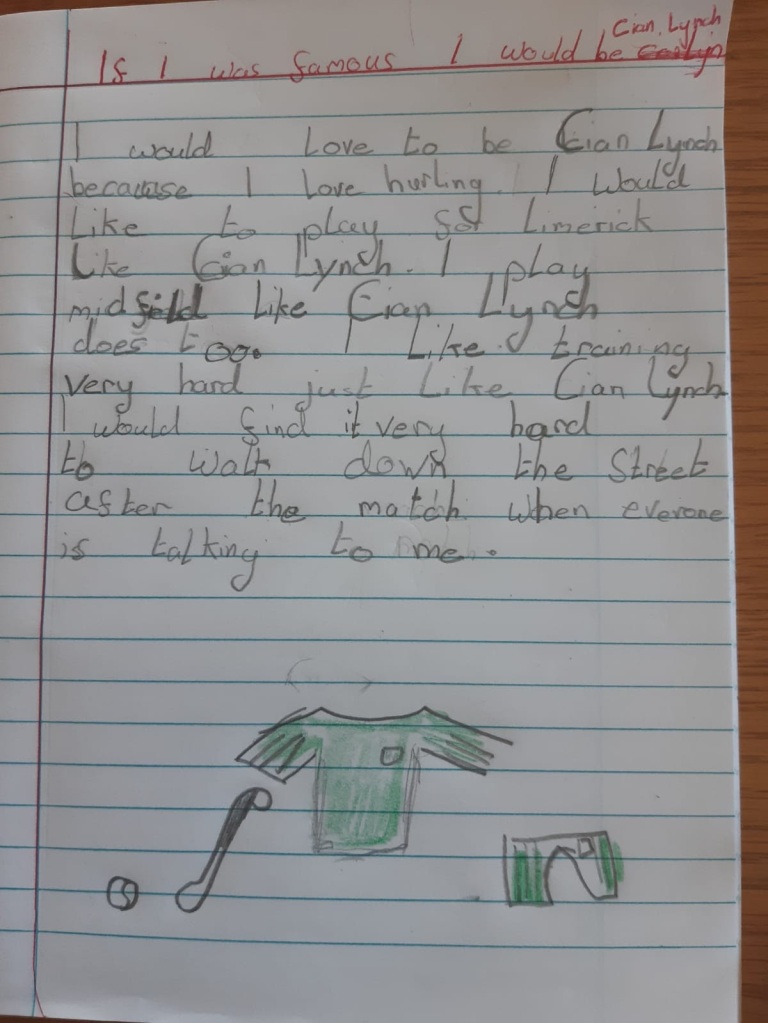 If I was famous I would be Cian Lynch
I would love to be Cian Lynch
because I love hurling. I would
like to play for Limerick
like Cian Lynch. I play
midfeild like Cian Llynch
does too. I like training
very hard just like Cian Lynch
I would find it very hard
to walk down the street
after the match when everone
is talking to me.